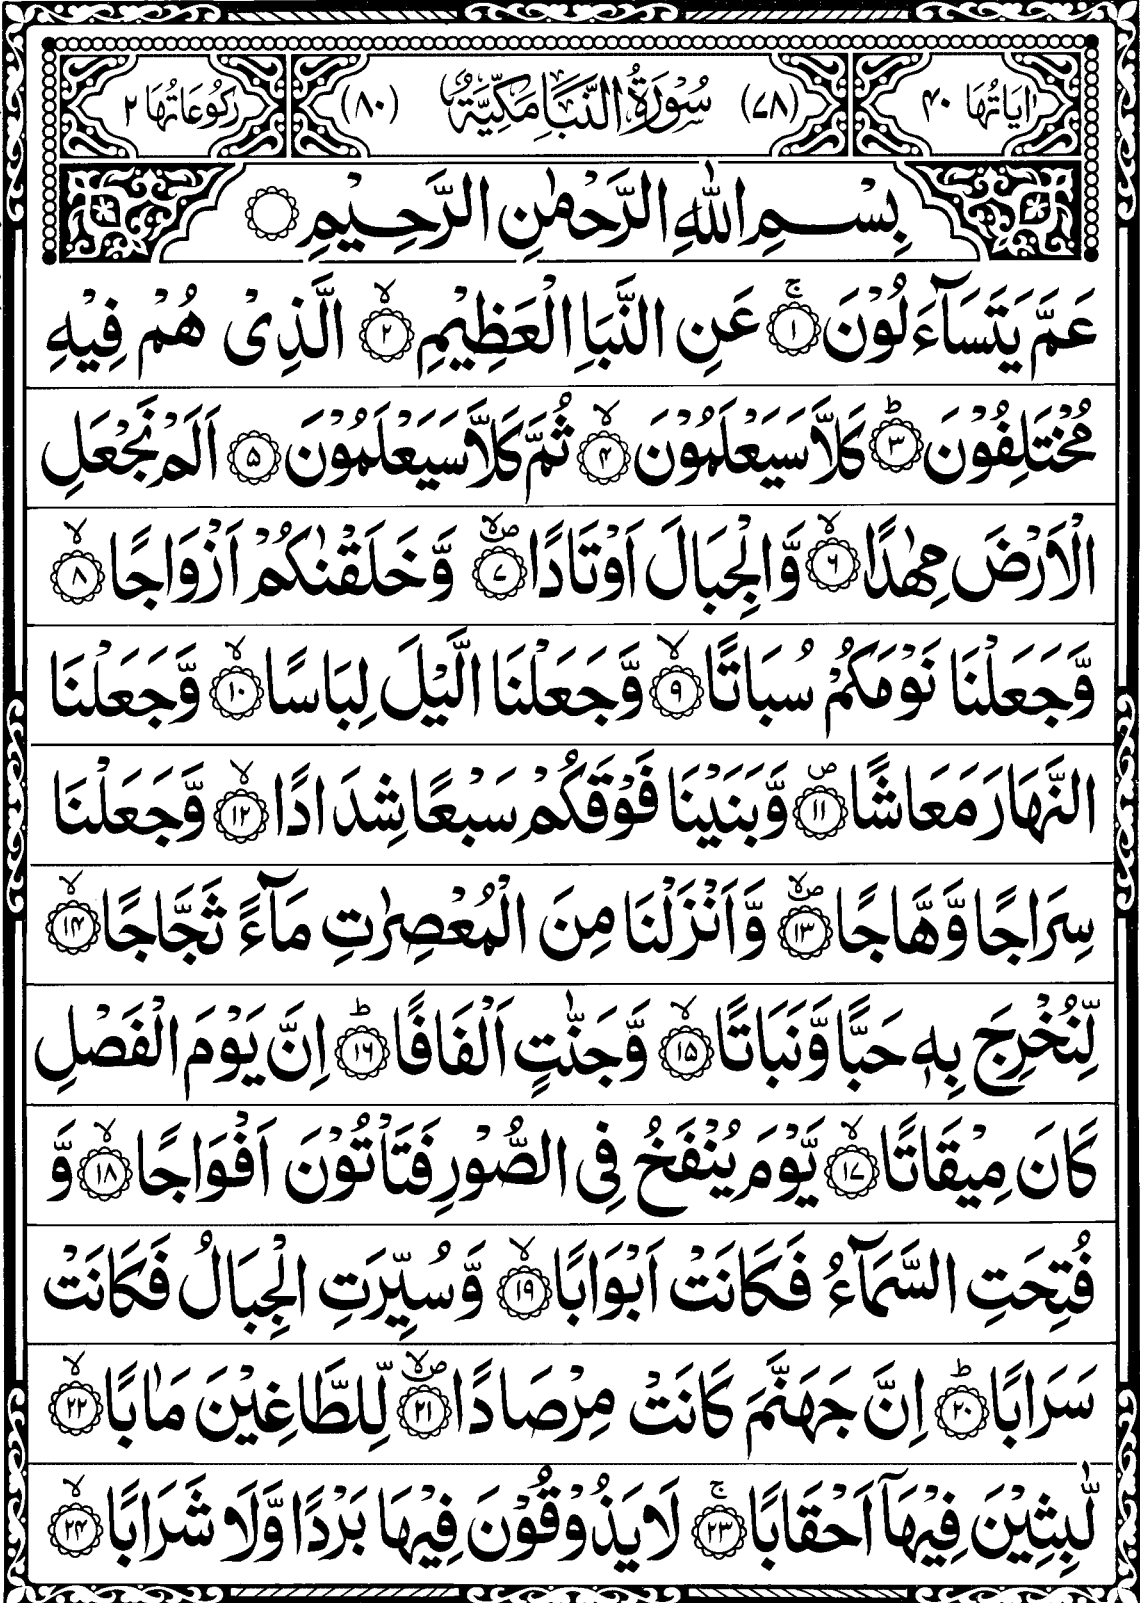 اٰيَاتُهَا ۴۰ (۷۸) سُوْرَةُ النَّبَاِ مَكِّيَّةٌ (۸۰) رُكُوْعَاتُهَا ۲
بِسْمِ اللّٰهِ الرَّحْمٰنِ الرَّحِيْمِ
عَمَّ يَتَسَآءَلُوْنَ ۚ‏﴿۱﴾ عَنِ النَّبَاِ الْعَظِيْمِ ۙ‏﴿۲﴾ الَّذِىْ هُمْ فِيْهِ
مُخْتَلِفُوْنَ ؕ‏﴿۳﴾ كَلَّا سَيَعْلَمُوْنَ ۙ‏﴿۴﴾ ثُمَّ كَلَّا سَيَعْلَمُوْنَ ﴿۵﴾ اَلَمْ نَجْعَلِ
الْاَرْضَ مِهٰدًا ۙ‏﴿۶﴾ وَّالْجِبَالَ اَوْتَادًا ۪ۙ‏﴿۷﴾ وَّخَلَقْنٰكُمْ اَزْوَاجًا ۙ‏﴿۸﴾
وَّجَعَلْنَا نَوْمَكُمْ سُبَاتًا ۙ‏﴿۹﴾ وَّجَعَلْنَا الَّيْلَ لِبَاسًا ۙ‏﴿۱۰﴾ وَّجَعَلْنَا
النَّهَارَ مَعَاشًا ۪‏﴿۱۱﴾ وَّبَنَيْنَا فَوْقَكُمْ سَبْعًا شِدَادًا ۙ‏﴿۱۲﴾ وَّجَعَلْنَا
سِرَاجًا وَّهَّاجًا ۪ۙ‏﴿۱۳﴾ وَّاَنْزَلْنَا مِنَ الْمُعْصِرٰتِ مَآءً ثَجَّاجًا ۙ‏﴿۱۴﴾
لِّنُخْرِجَ بِهٖ حَبًّا وَّنَبَاتًا ۙ‏﴿۱۵﴾ وَّجَنّٰتٍ اَلْفَافًا ؕ‏﴿۱۶﴾ اِنَّ يَوْمَ الْفَصْلِ
كَانَ مِيْقَاتًا ۙ‏﴿۱۷﴾ يَّوْمَ يُنْفَخُ فِى الصُّوْرِ فَتَاْتُوْنَ اَفْوَاجًا ۙ‏﴿۱۸﴾ وَّ
فُتِحَتِ السَّمَآءُ فَكَانَتْ اَبْوَابًا ۙ‏﴿۱۹﴾ وَّسُيِّرَتِ الْجِبَالُ فَكَانَتْ
سَرَابًا ؕ‏﴿۲۰﴾ اِنَّ جَهَنَّمَ كَانَتْ مِرْصَادًا ۪ۙ‏﴿۲۱﴾ لِّلطَّاغِيْنَ مَاٰبًا ۙ‏﴿۲۲﴾
لّٰبِثِيْنَ فِيْهَاۤ اَحْقَابًا ۚ‏﴿۲۳﴾ لَا يَذُوْقُوْنَ فِيْهَا بَرْدًا وَّلَا شَرَابًا ۙ‏﴿۲۴﴾